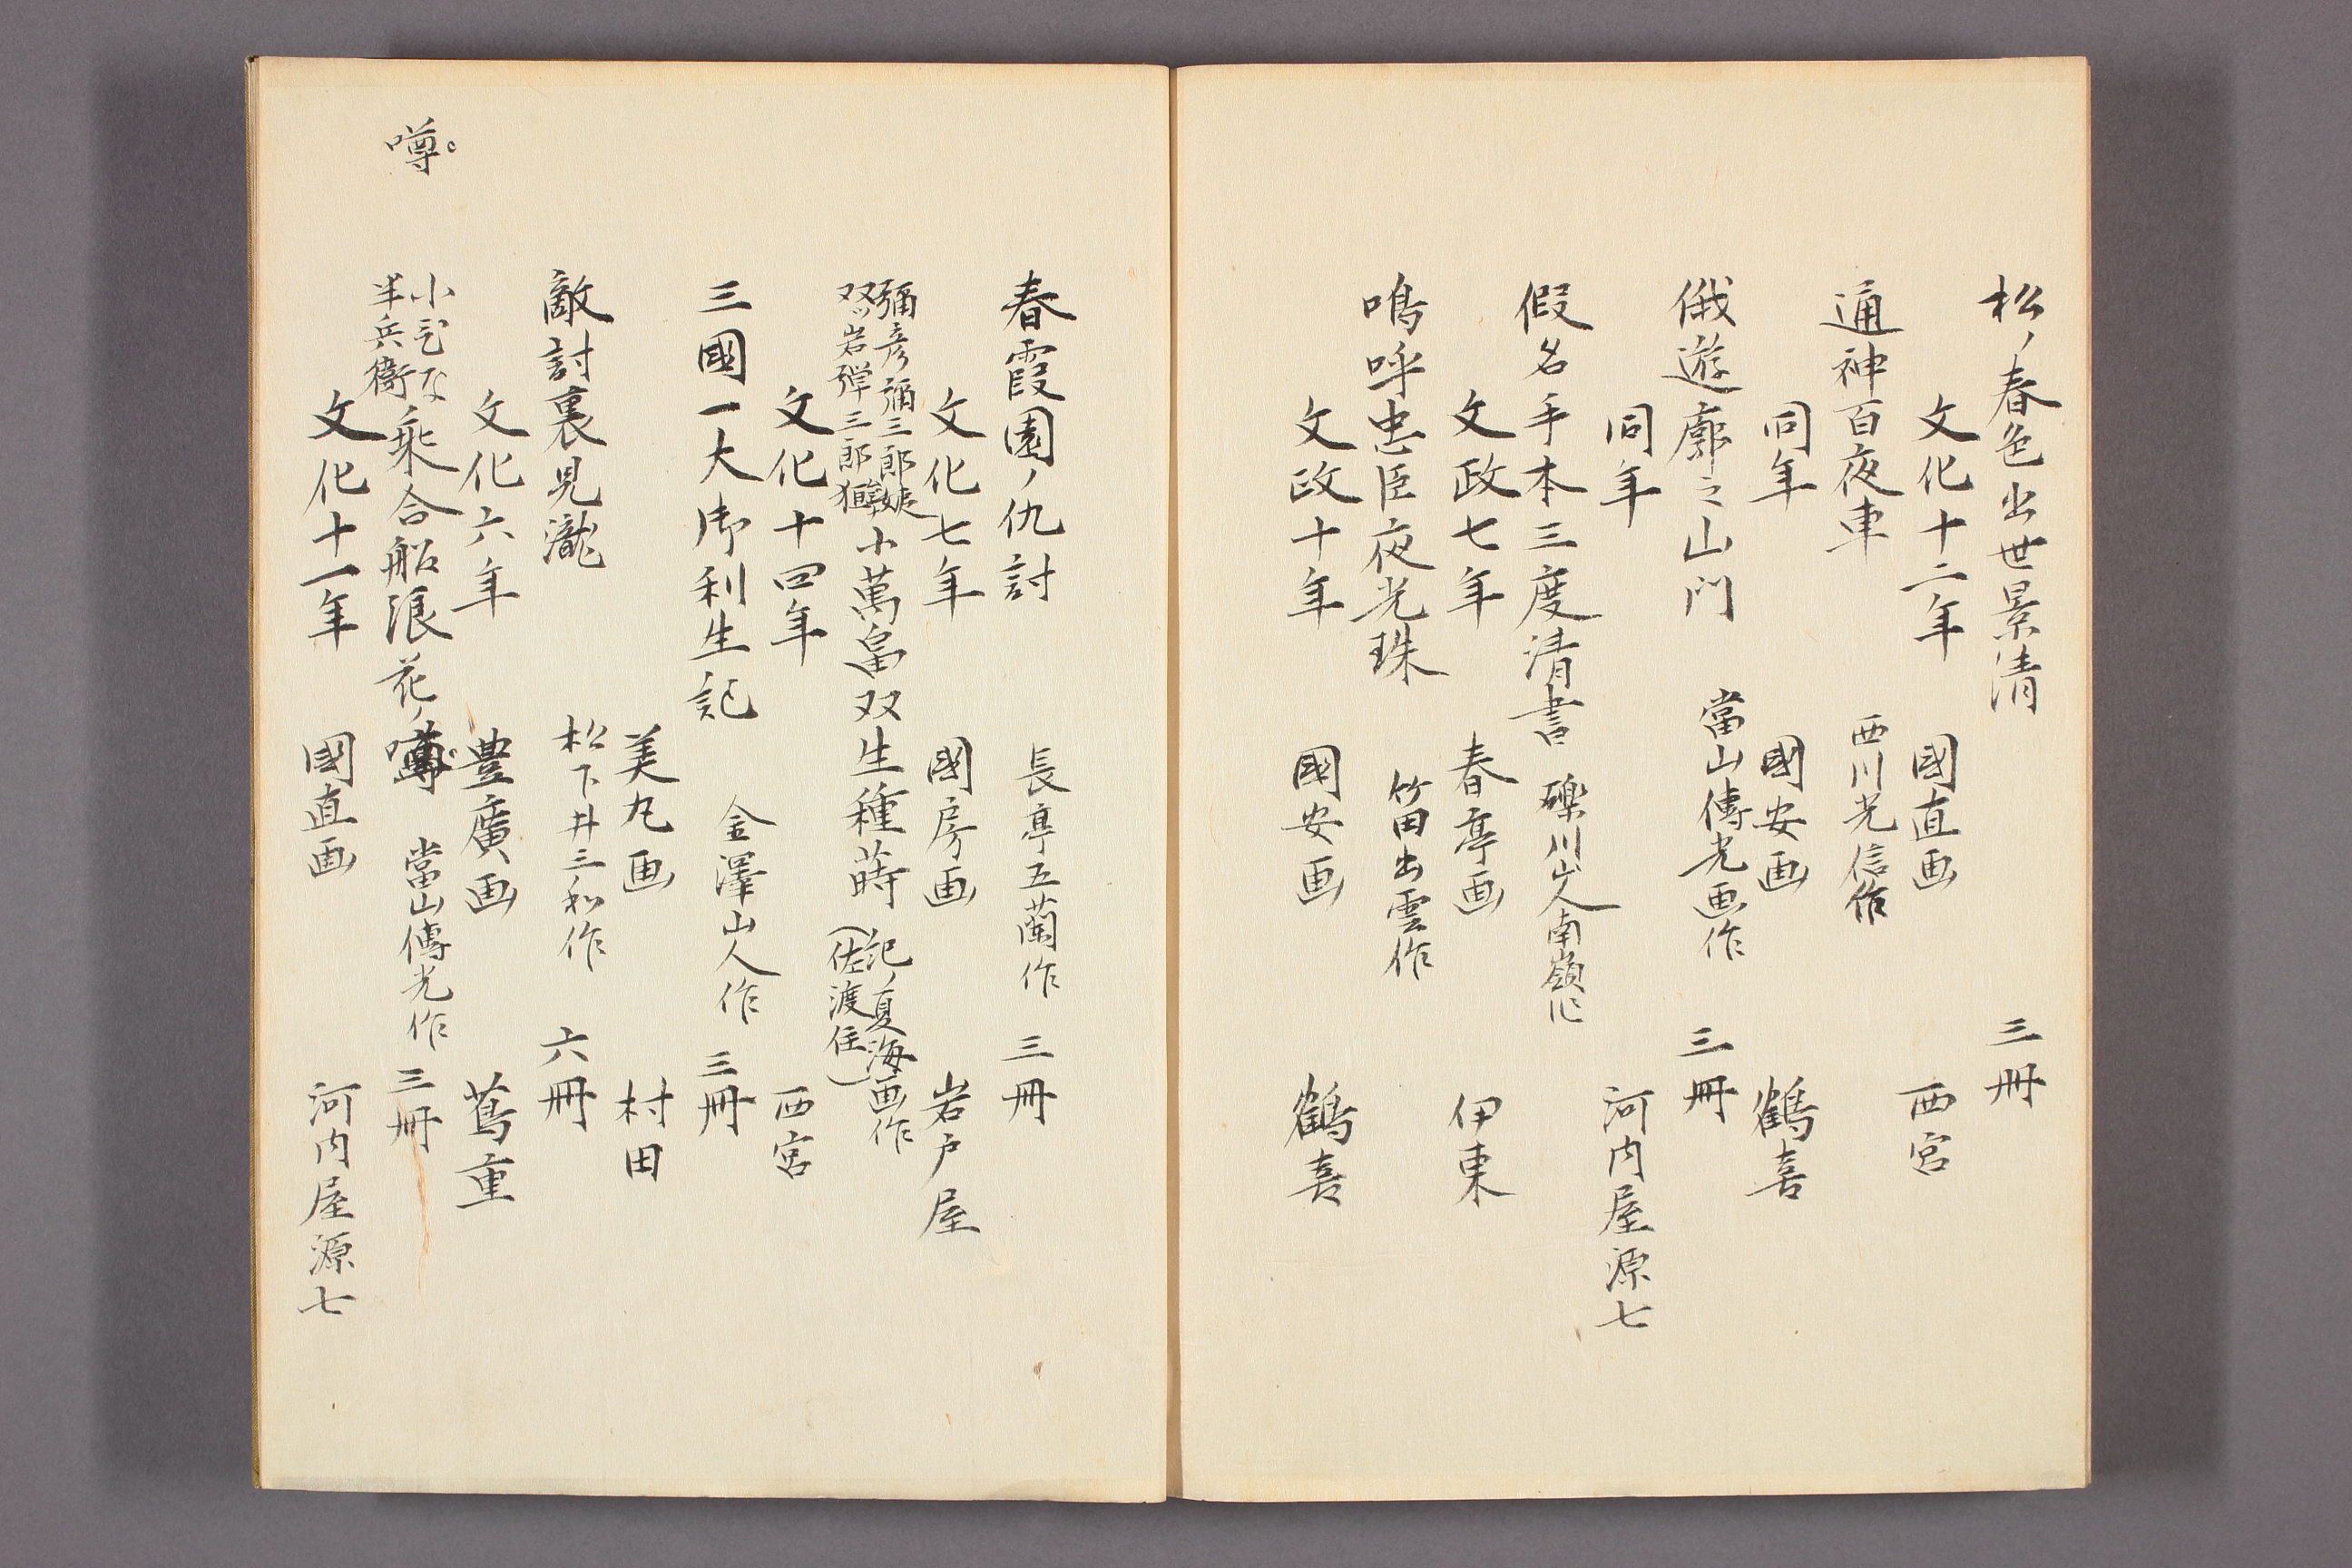 松ノ春色出世景清 三冊
文化十二年 國直画 西宮
通神百夜車 西川光信作
同年 國安画 鶴喜
俄遊廓之山門 當山傳光画作 三冊
同年 河内屋源七
假名手本三度清書 礫川山人南嶺作
文政七年 春亭画 伊東
鳴呼忠臣夜光珠 竹田出雲作
文政十年 國安画 鶴喜
春霞園ノ仇討 長亭五蘭作 三冊
文化七年 國房画 岩戸屋
彌彦彌三郎
双ッ岩弾三郎
小萬畠双生種蒔 記ノ夏海画作
(佐渡住)
文化十四年 西宮
三國一大御利生記 金澤山人作 三冊
美丸画 村田
敵討裏見瀧 松下井三和作 六冊
文化六年 豊廣画 蔦重
噂
小いな
半兵衛
乘合船浪花ノ噂 當山傳光作 三冊
文化十一年 國直画 河内屋源七